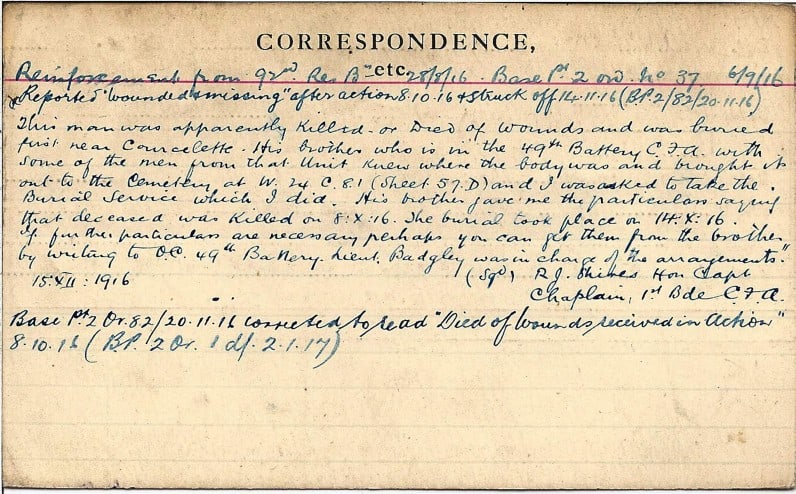 CORRESPONDENCE,
etc.
Reinforcement from 92nd. Res Bn 28/8/16. Base Pt. 2 ord. No 37 6/9/16
Reported "wounded & missing" after action 8.10.16 & Struck off 14.11.16 (BP2/82/20.11.16)
"This man was apparently Killed or Died of Wounds and was buried
first near Courcelette. His brother who is in the 49th Battery C.F.A. with
some of the men from that Unit knew where the body was and brought it
out to the Cemetery at W.24.C.8.1 (Sheet 57.D) and I was asked to take the
Burial Service which I did. His brother gave me the particulars saying
that deceased was killed on 8:X:16. The burial took place on 14.X.16.
If further particulars are necessary perhaps you can get them from the brother
by writing to O.C. 49th Battery. Lieut. Badgley was in charge of the arrangements."
15:XII:1916 (Sgd) R.J. Shires Hon Capt
Chaplain, 1st Bde C.F.A.
Base Pt 2 Or. 82/20.11.16 corrected to read "Died of Wounds received in Action"
8.10.16 (B.P. 2 Or. 1 d/. 2.1.17)